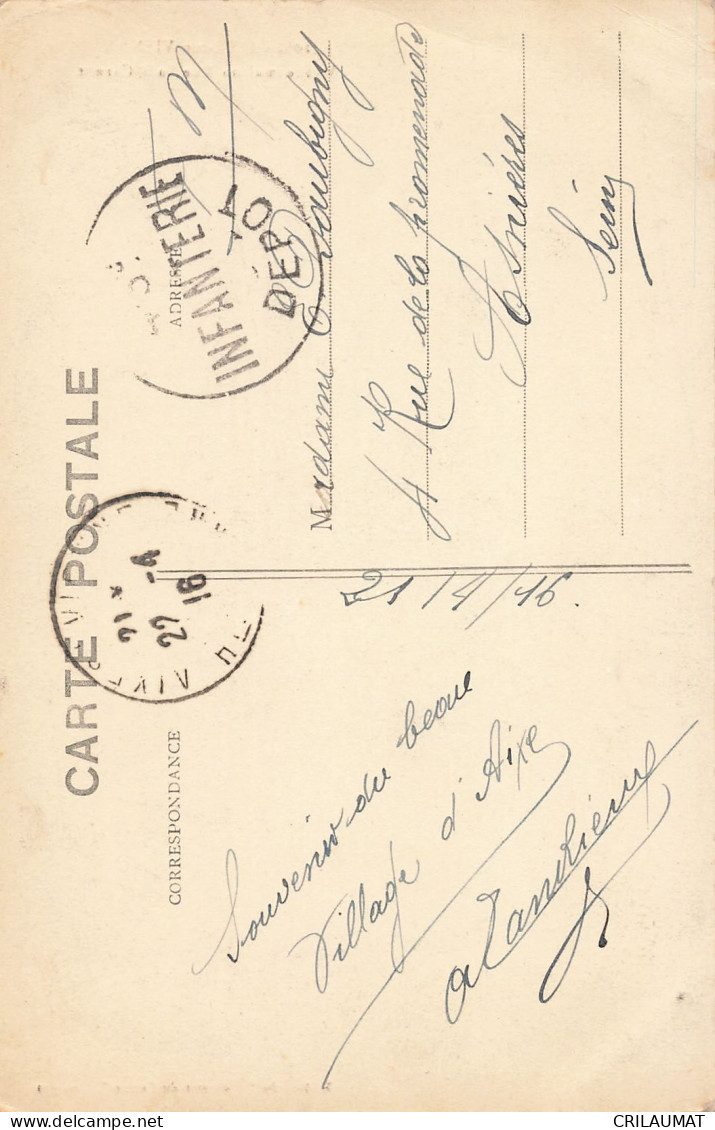 CARTE POSTALE
CORRESPONDANCE
21/4/16.
Souvenir du beau
Village d'Aixe
ADRESSE
INFANTERIE
DEPOT
Madame Daubigny
4 Rue de la promenade
Asnières
Seine
21 *
22 -4
16
CRILAUMAT